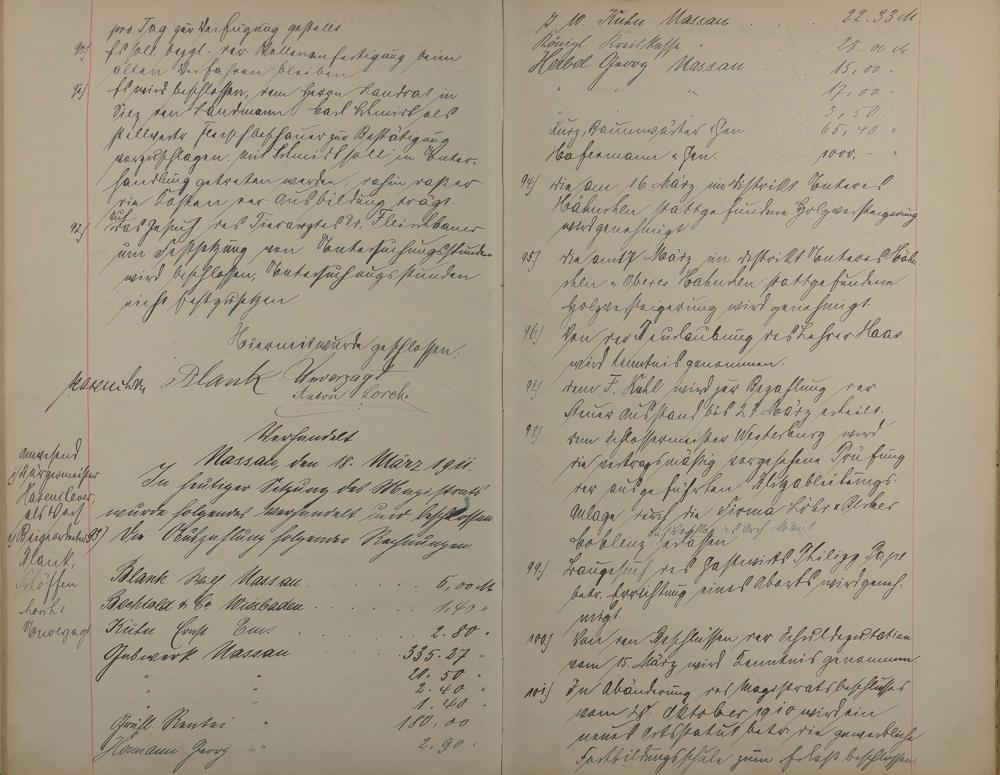 pro Tag zur Verfügung gestellt.
90) Es soll bezgl. der Wellenanfertigung beim
alten Verfahren bleiben
91) Es wird beschlossen, dem Herrn Landrat in
Diez den Landmann Carl Schmidt als
stellvertr. Fleischbeschauer zur Bestätigung
vorzuschlagen. Mit Schmidt soll in Unter-
handlung getreten werden, dahin daß er
die Kosten der Ausbildung trägt.
92) Auf das Gesuch des Tierarztes Dr.
um Festsetzung von Untersuchungsstunden
wird beschlossen, Untersuchungsstunden
nicht festzusetzen.
Hiermit wurde geschlossen.
Hasenclever Blank Unverzagt
Anton Lorch
Verhandelt
Nassau, den 18. März 1911.
Anwesend
1) Bürgermeister
Hasenclever,
als Vors.
2) Beigeordneter
Blank,
Schöffen
Lorch
Unverzagt
In heutiger Sitzung des Magistrats
wurde folgendes verhandelt und beschlossen
93) Die Auszahlung folgender Rechnungen.
Blank Nassau 6,00 M
Bechtold & Co Wiesbaden 1,41 "
Kuhn Ernst Ems 2.80 "
Gaswerk Nassau 335.27 "
" " 20.50 "
" " 2.40 "
" " 1.40 "
Gräfl. Rentei " 180,00 "
Hermann Georg " " 2.90 "
J. W. Kuhn Nassau 22.33 M
Königl. Kreiskasse " 28.00 M
Herbel Georg Nassau 15,00 "
" " 17,00 "
3,50 "
Kurz, Baumwärter u. Gen. 65,40 "
Hafermann u. Gen. 1000.- "
94) Die am 16 März im Distrikt Unteres
Hähnchen stattgefundene Holzversteigerung
wird genehmigt
95) Die am 17 März im Distrikt Unteres Hähn-
chen u. Oberes Hähnchen stattgefundene
Holzversteigerung wird genehmigt
96) Von der Beurlaubung des Lehrer Haas
wird Kenntnis genommen.
97) Dem F. Kuhl wird zur Bezahlung der
Steuer Ausstand bis 29. März erteilt.
98) Dem Schlossermeister Westerburg wird
die vertragsmäßig vorgesehene Prüfung
der ausgeführten Blitzableitungs-
Anlage durch die Firma Löhr u.
Coblenz erlassen
99) Baugesuch des Gastwirts Philipp Pape
betr. Errichtung eines Aborts wird geneh-
migt.
100) Von den Beschlüssen der Schuldeputation
vom 15. März wird Kenntnis genommen.
101) In Abänderung des Magistratsbeschlusses
vom 28. Oktober 1910 wird ein
neues Ortsstatut betr. die gewerbliche
Fortbildungsschule zum Erlaß beschlossen.